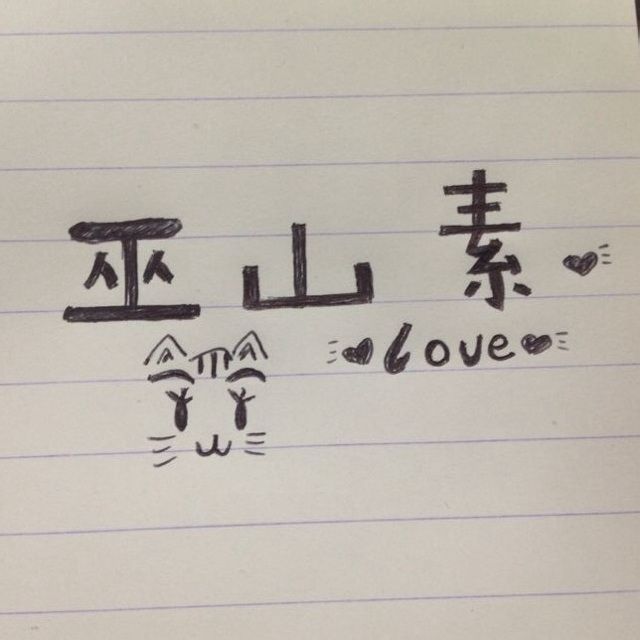 巫山素
Love